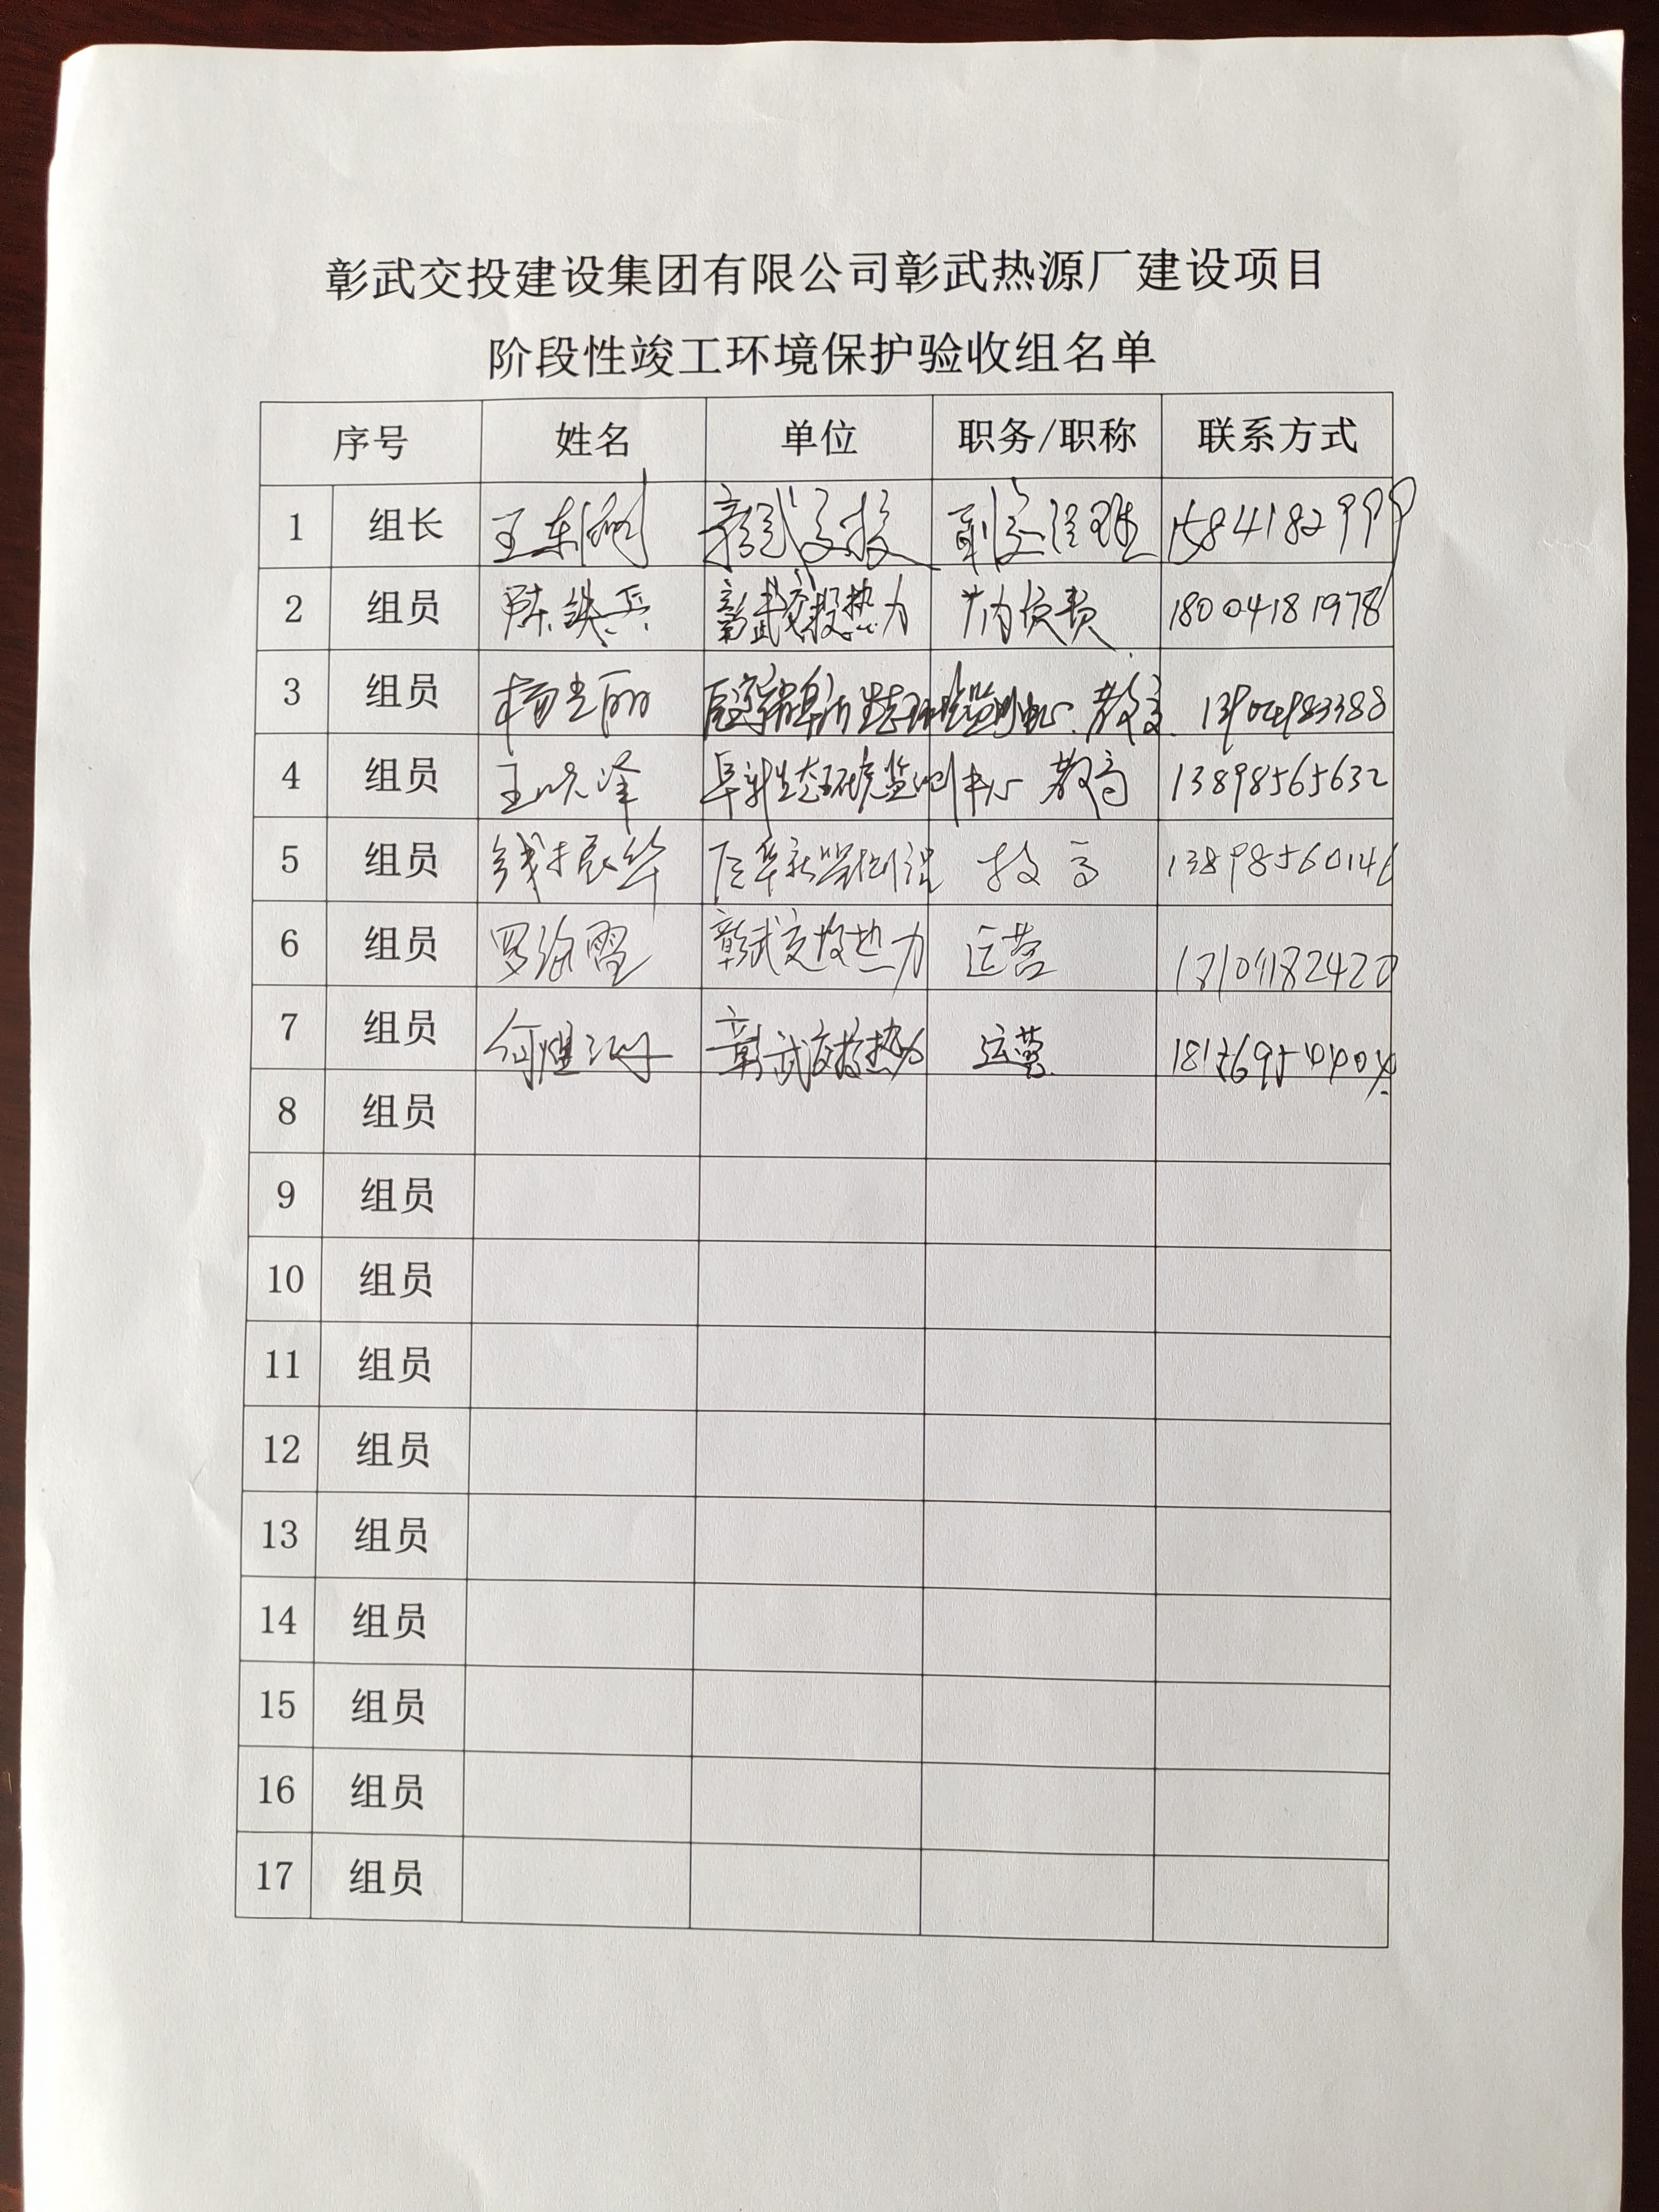 彰武交投建设集团有限公司彰武热源厂建设项目
阶段性竣工环境保护验收组名单
序号 姓名 单位 职务/职称 联系方式
1 组长 王东 彰武交投 副总经理 15841829999
2 组员 陈铁兵 彰武交投热力 厂内负责 18004181978
3 组员 杨 丽 教高
4 组员 王 峰 阜新生态环境监测中心 教高 13898565632
5 组员 钱振华 教高 13898560146
6 组员 罗 彰武交投热力 运营
7 组员 何 彰武交投热力 运营
8 组员
9 组员
10 组员
11 组员
12 组员
13 组员
14 组员
15 组员
16 组员
17 组员